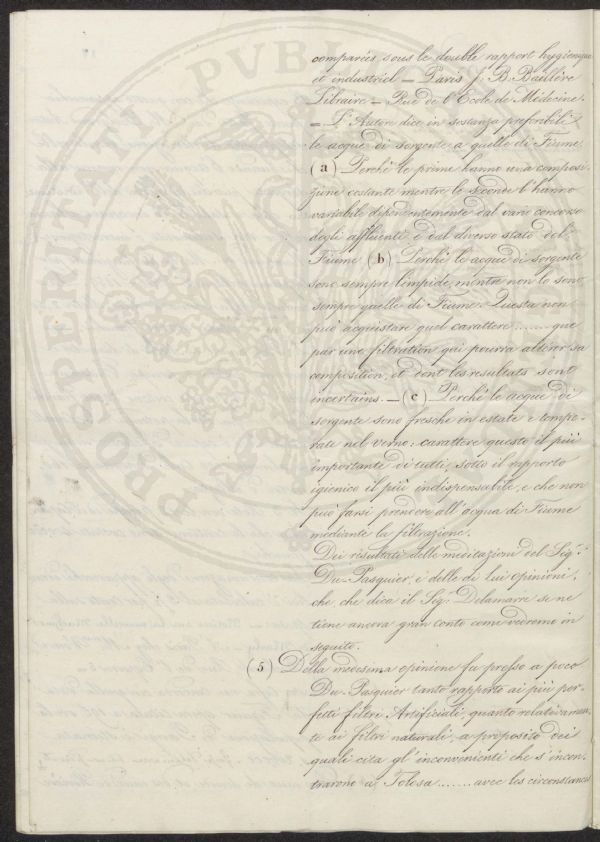 comparées sous le double rapport hygienique
et industriel _ Paris J. B. Baillère
Libraire _ Rue de l'Ecole de Médecine.
_ L'Autore dice in sostanza preferibili
le acque di sorgente a quelle di Fiume
(a) Perchè le prime hanno una composi-
zione costante mentre le seconde l'hanno
variabile dipendentemente dal vario concorso
degli affluenti e dal diverso stato del
Fiume (b) Perchè le acque di sorgente
sono sempre limpide, mentre non lo sono
sempre quelle di Fiume. Questa non
può acquistare quel carattere ....... que
par une filtration qui pourra altérer sa
composition, et dont les resultats sont
incertains. _ (c) Perchè le acque di
sorgente sono fresche in estate e tempe-
rate nel verno: carattere questo il più
importante di tutti, sotto il rapporto
igienico il più indispensabile, e che non
può farsi prendere all'acqua di Fiume
mediante la filtrazione.
Dei risultati delle meditazioni del Sig.r
Du-Pasquier, e delle di lui opinioni,
che che dica il Sig. Delamarre se ne
tiene ancora gran conto come vedremo in
seguito.
(5) Della medesima opinione fu presso a poco
Du-Pasquier tanto rapporto ai più per-
fetti filtri Artificiali, quanto relativamen-
te ai filtri naturali, a proposito dei
quali cita gl'inconvenienti che s'incon-
trarono a Tolosa ....... avec les circonstances
PROSPERITATI PVBL